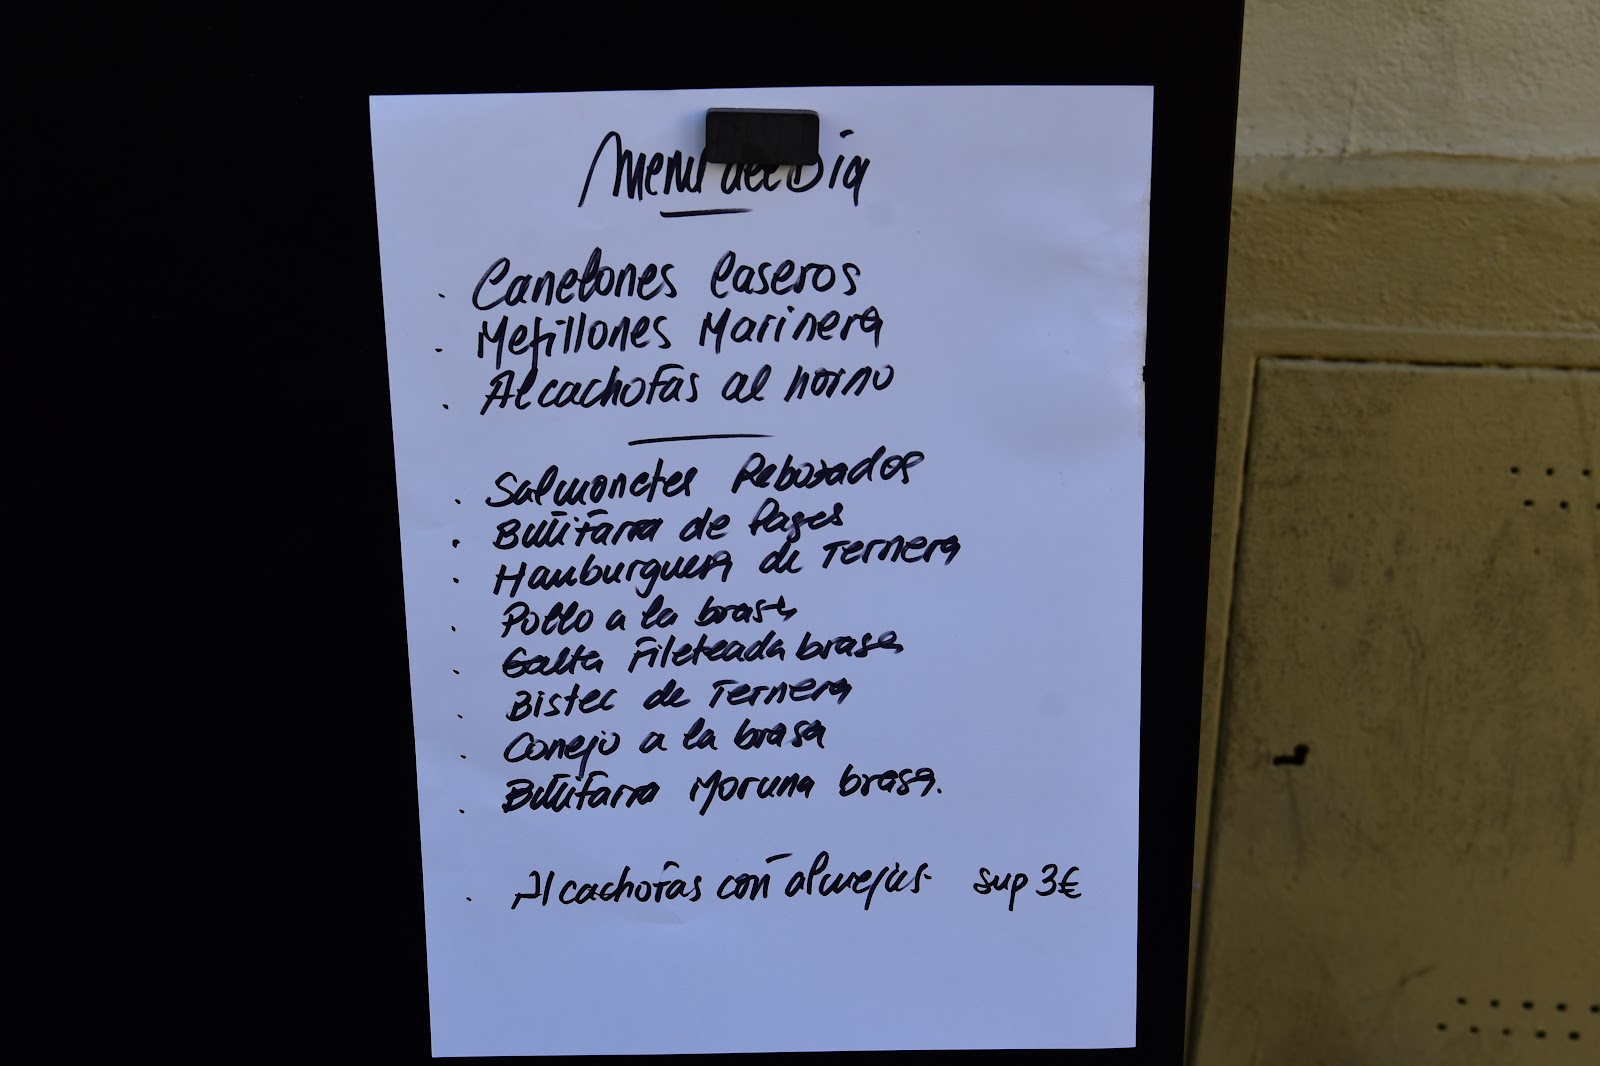 Menu del Dia
. Canelones Caseros
. Mejillones Marinera
. Alcachofas al horno
. Salmonetes Rebozados
. Butifarra de Pages
. Hamburguesa de Ternera
. Pollo a la brasa
. Galta Fileteada brasa
. Bistec de Ternera
. Conejo a la brasa
. Butifarra Moruna brasa.
. Alcachofas con almejas. sup 3€